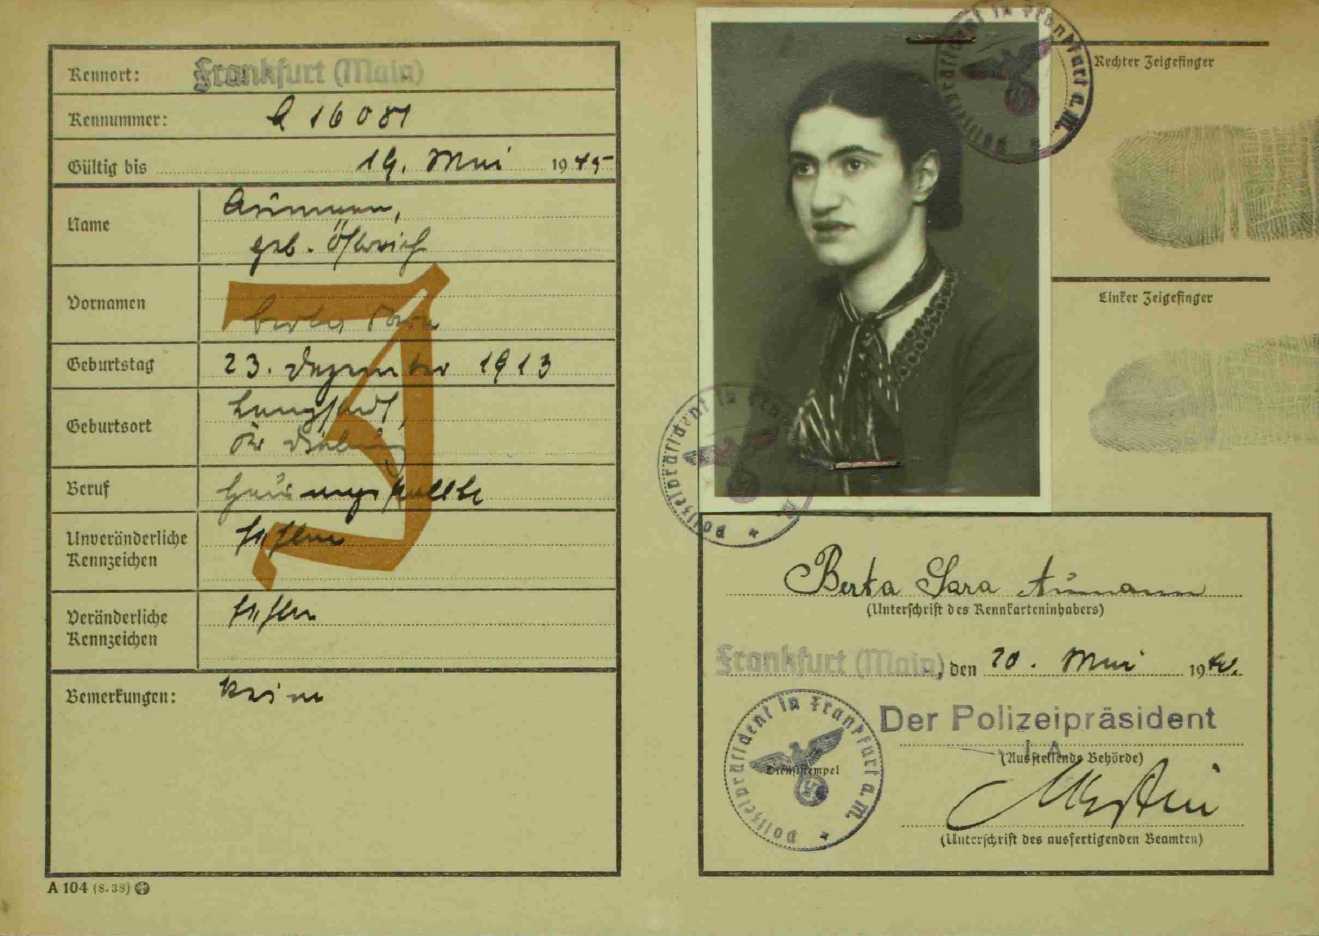 Kennort: Frankfurt (Main)
Kennummer: A 16081
Gültig bis 19. Mai 1945
Name Aumann,
geb. Östreich
Vornamen Berta Sara
Geburtstag 23. Dezember 1913
Geburtsort Langstadt,
Kr. Dieburg
Beruf
Unveränderliche Kennzeichen fehlen
Veränderliche Kennzeichen fehlen
Bemerkungen: Keine
J
A 104 (8.38)
Rechter Zeigefinger
Linker Zeigefinger
Polizeipräsident in Frankfurt a. M.
Polizeipräsident in Frankfurt a. M.
Berta Sara Aumann
(Unterschrift des Kennkarteninhabers)
Frankfurt (Main), den 20. Mai 1940.
Der Polizeipräsident
I. A.
(Ausstellende Behörde)
Polizeipräsident in Frankfurt a. M.
Dienststempel
(Unterschrift des ausfertigenden Beamten)